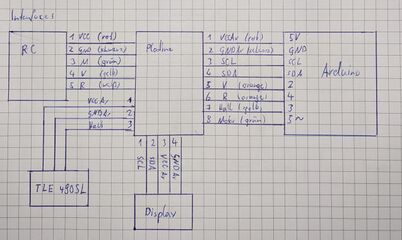 Interfaces
RC
1 VCC (rot)
2 GND (schwarz)
3 M (grün)
4 V (gelb)
5 R (weiß)
Platine
1 VCCAr (rot)
2 GNDAr (schwarz)
3 SCL
4 SDA
5 V (orange)
6 R (orange)
7 Hall (gelb)
8 Motor (grün)
5V
GND
SCL
SDA
2
4
3
5 ~
Arduino
VCCAr 1
GNDAr 2
Hall 3
TLE 4905L
1 2 3 4
SCL
SDA
VCCAr
GNDAr
Display